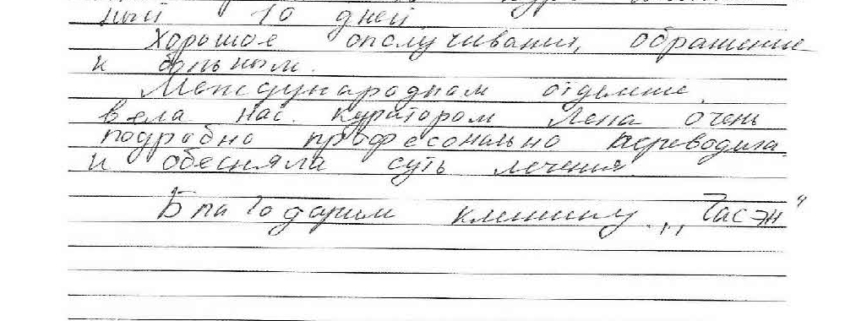 ный 10 дней
Хорошое опслучивания, обрашение
к больным.
Международнам отделише.
вела нас. куратором Лена очень
подробно професонально переводила.
и обесняла суть лечения.
Благодарим клинику „Часэн"